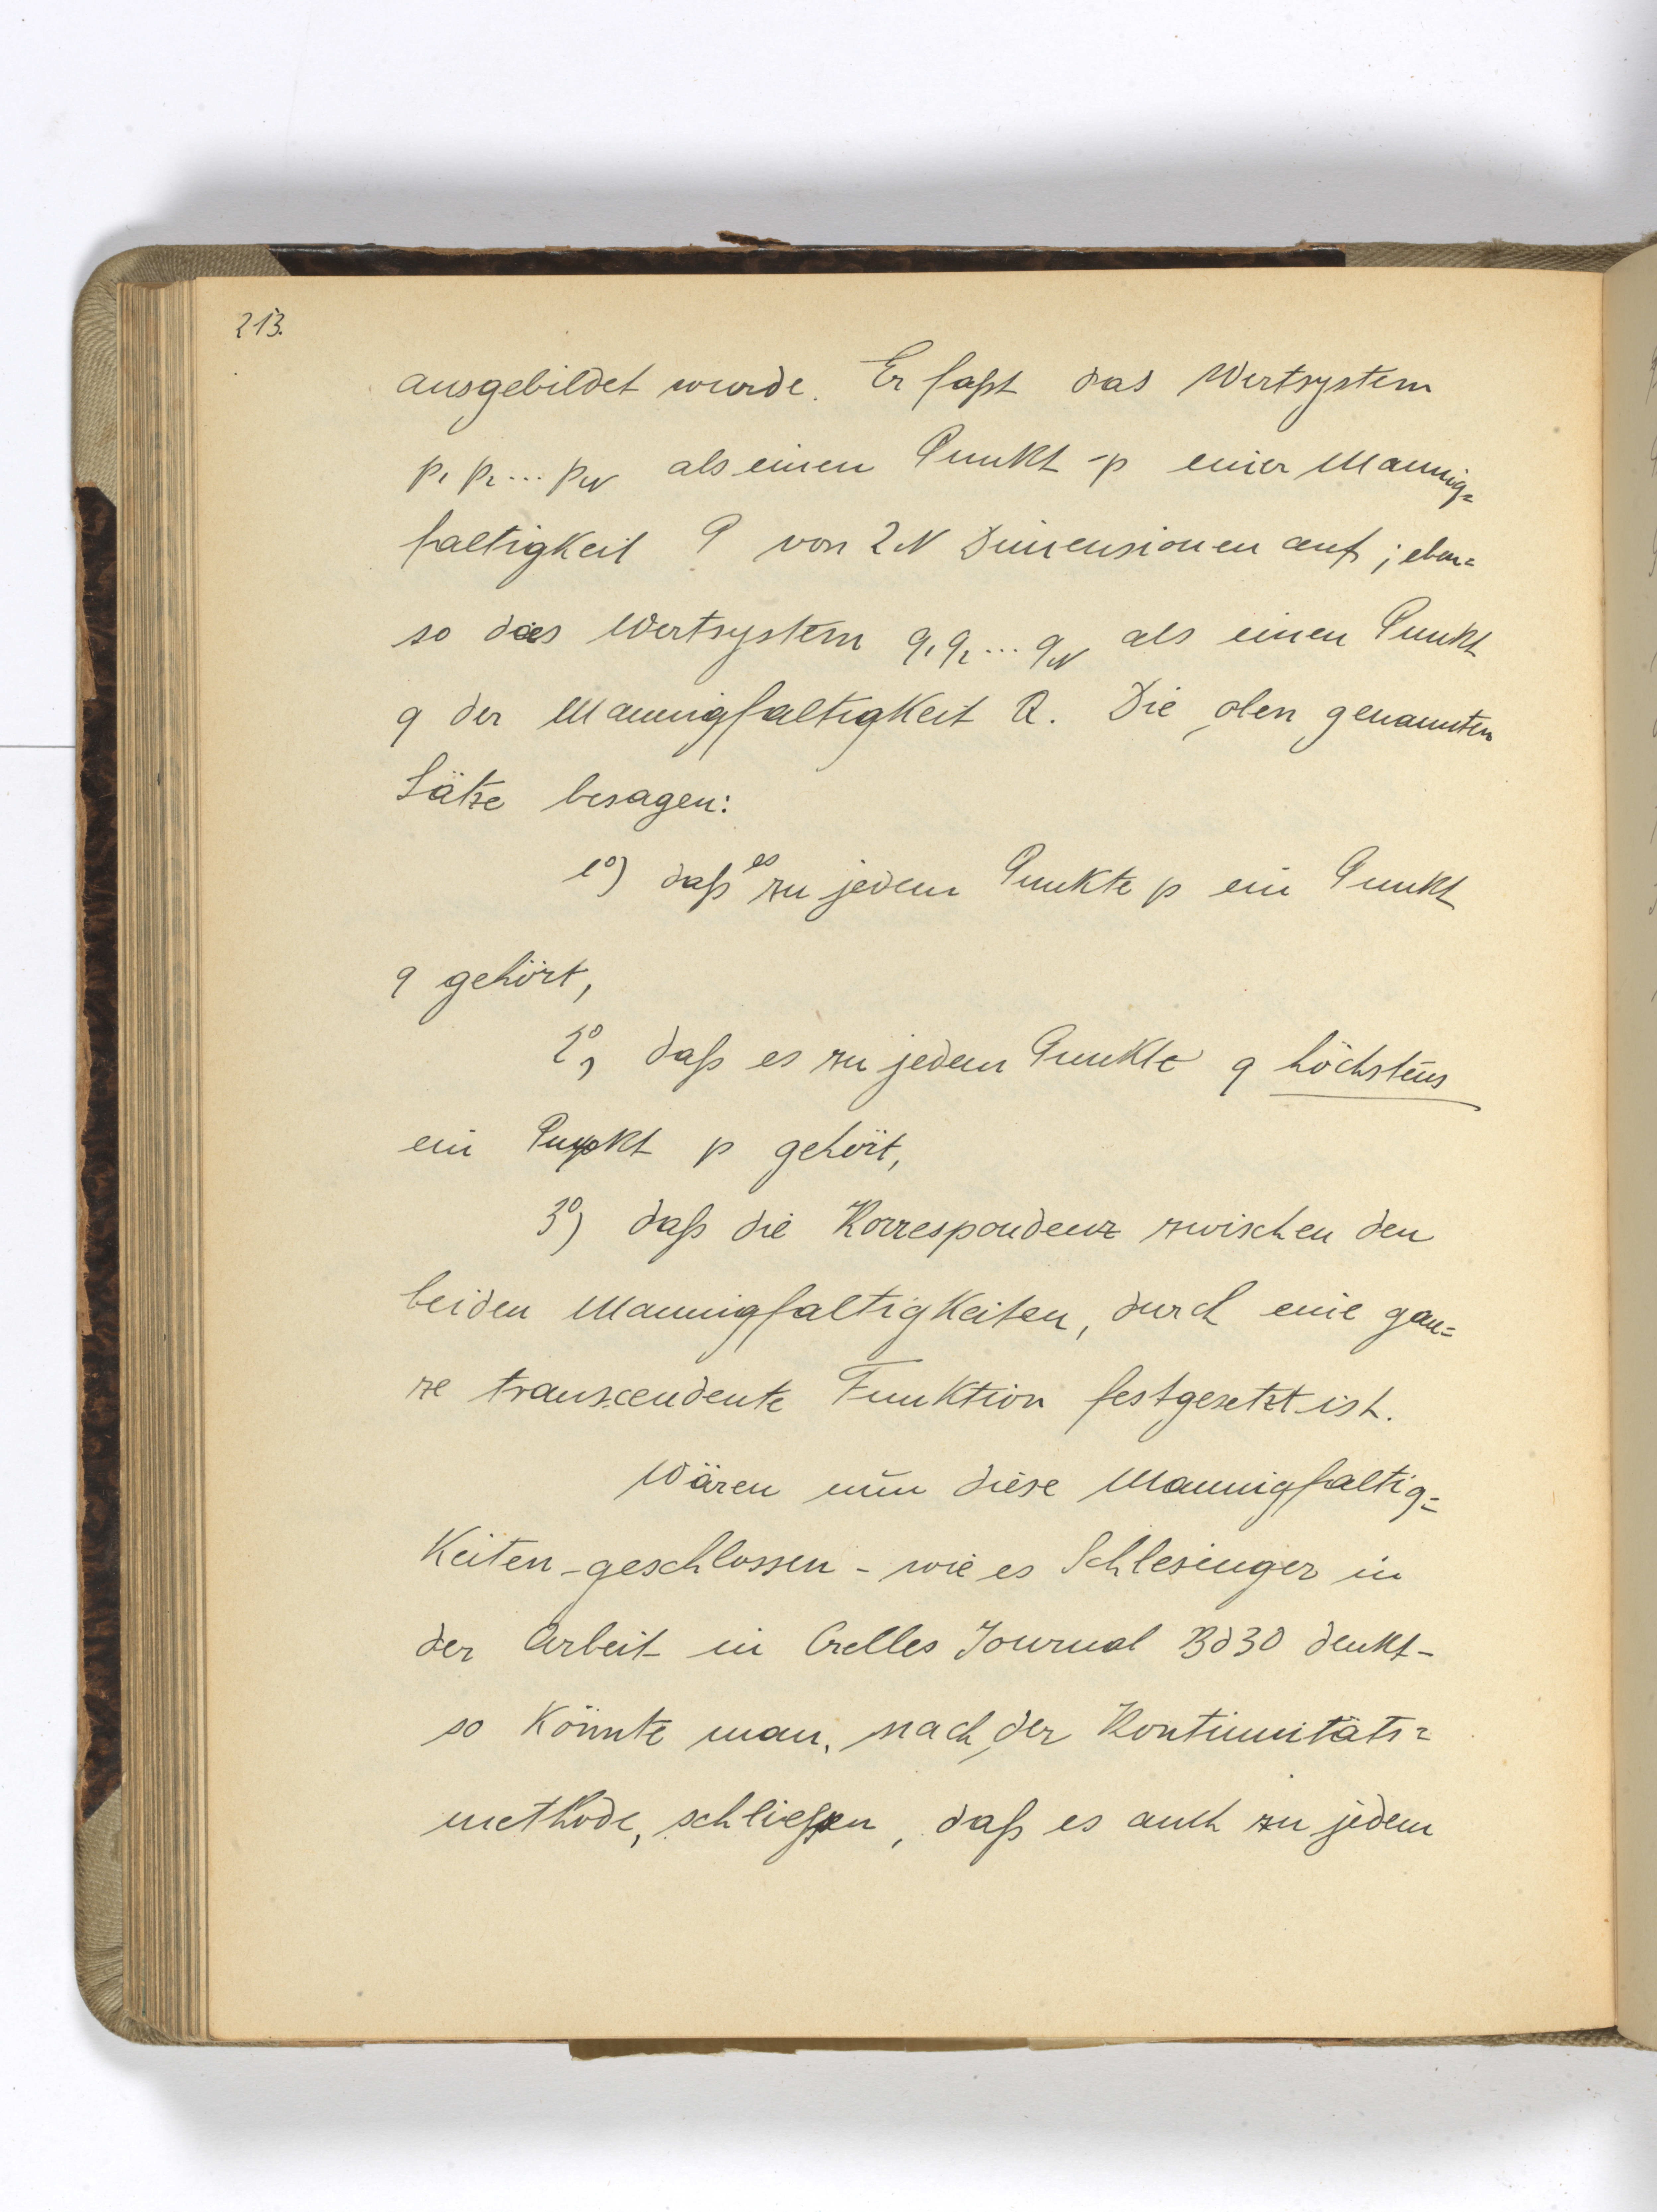 213.
ausgebildet wurde. Er faßt das Wertsystem
p₁ p₂ ... p_N als einen Punkt p einer Mannig=
faltigkeit P von 2N Dimensionen auf; eben=
so das Wertsystem q₁ q₂ ... q_N als einen Punkt
q der Mannigfaltigkeit Q. Die oben genannten
Sätze besagen:
1⁰) daß es zu jedem Punkte p ein Punkt
q gehört,
2⁰) daß es zu jedem Punkte q höchstens
ein Punkt p gehört,
3⁰) daß die Korrespondenz zwischen den
beiden Mannigfaltigkeiten, durch eine gan=
ze transcendente Funktion festgesetzt ist.
Wären nun diese Mannigfaltig=
keiten - geschlossen - wie es Schlesinger in
der Arbeit in Crelles Journal Bd 30 denkt -
so könnte man, nach der Kontinuitäts=
methode, schließen, daß es auch zu jedem